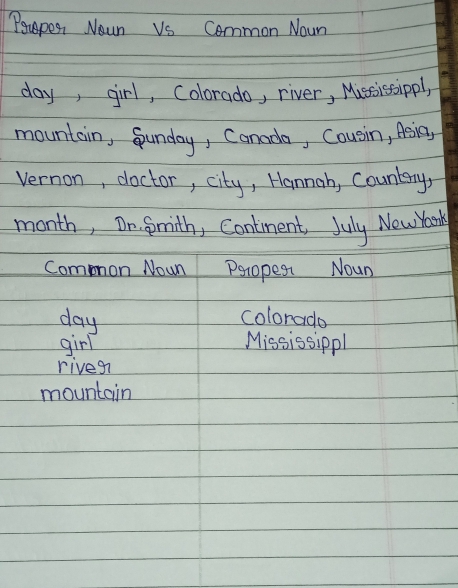 Proper Noun Vs Common Noun
day, girl, Colorado, river, Mississippl,
mountain, Sunday, Canada, Cousin, Asia,
Vernon, doctor, city, Hannah, Country,
month, Dr. Smith, Continent, July New York
Common Noun Proper Noun
day Colorado
girl Mississippl
river
mountain